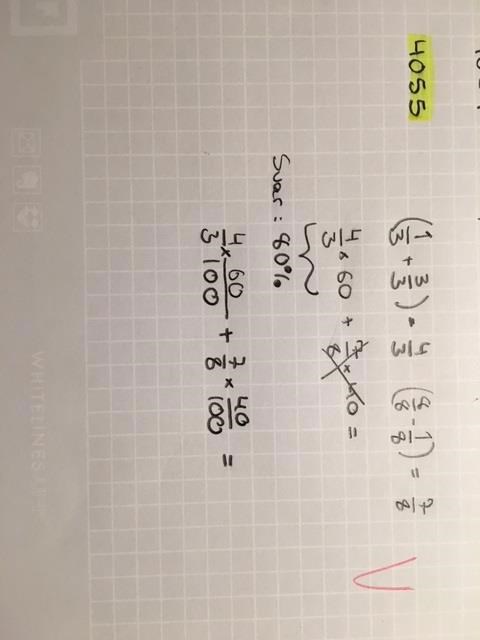 4055
(1/3 + 3/3) = 4/3 (8/8 - 1/8) = 7/8
4/3 × 60 + 7/8 × 40 =
Svar: 80%
4/3 × 60/100 + 7/8 × 40/100 =
WHITELINES